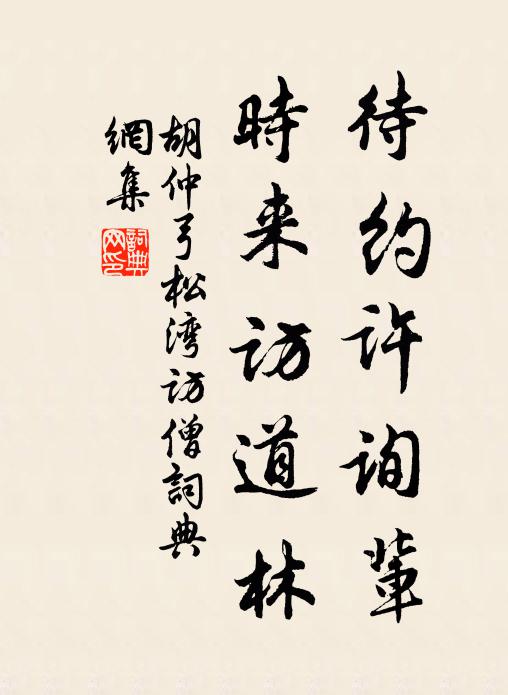 待约许询辈
時来访道林
胡仲弓松湾访僧詞典
網集
詞典網印